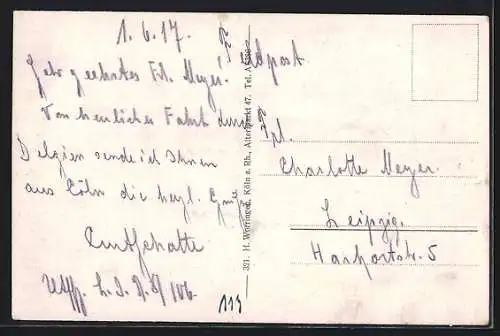 1. 6. 17.
Feldpost
Sehr geehrtes Frl. Meyer!
Von herrlicher Fahrt durch
Belgien sende ich Ihnen
aus Cöln die herzl. Grüße
Uffz. L. I. R. 106.
119
321. H. Worringen, Köln a. Rh., Altermarkt 47. Tel. A
Frl.
Charlotte Meyer.
Leipzig.
Harkortstr. 5